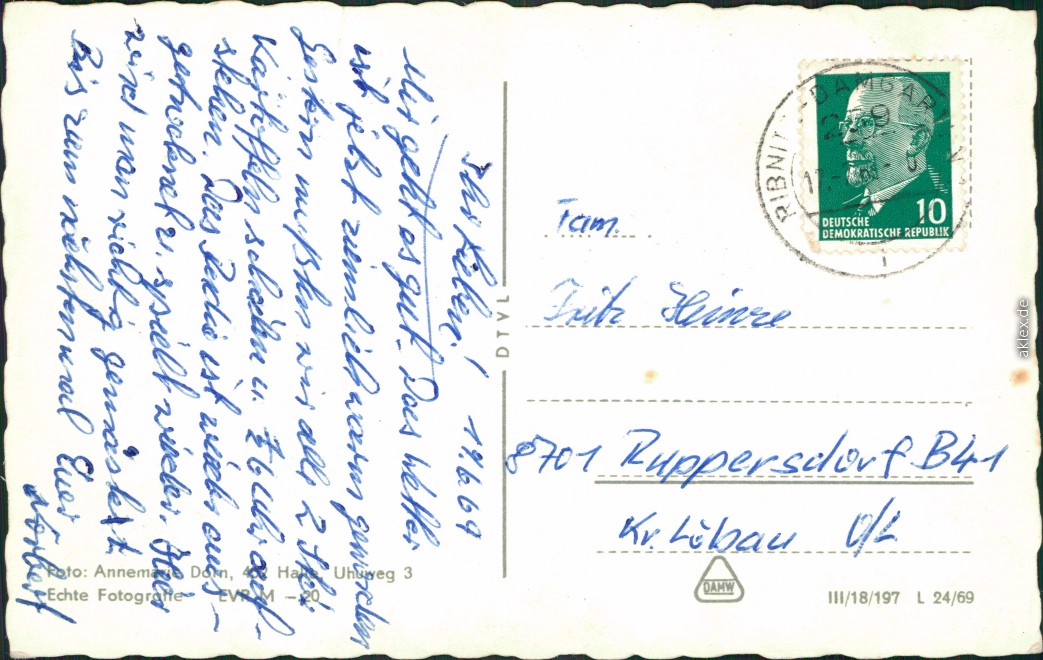 Ihr Lieben! 17.6.69
Mir geht es gut. Das Wetter
ist jetzt ziemlich warm geworden
Gestern mußten wir alle 2 Std.
Kartoffeln schälen u. ½6 Uhr auf-
stehen. Das Radio ist wieder aus-
getrocknet u. spielt wieder. Hier
wird man richtig gemästet.
Bis zum nächstenmal Euer
Norbert
Foto: Annemarie Dorn, Halle, Uhuweg 3
Echte Fotografie EVP M -20
DTVL
RIBNITZ-DAMGARTEN
10
DEUTSCHE
DEMOKRATISCHE REPUBLIK
Fam.
Fritz Heinze
8701 Ruppersdorf B41
Kr. Löbau O/L
DAMW
III/18/197 L 24/69
aklex.de